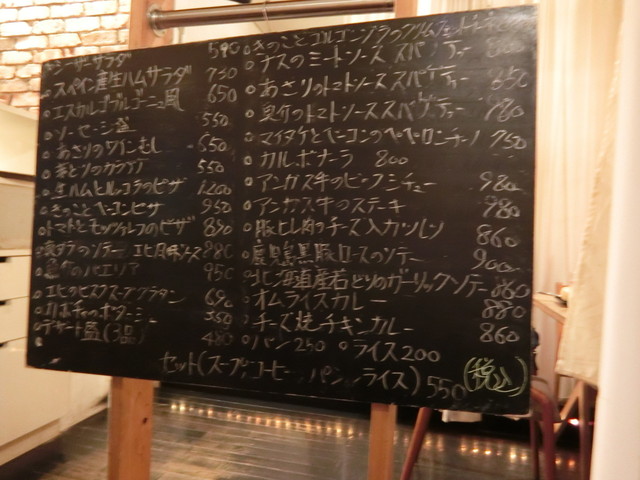 シーザーサラダ 590
スペイン産生ハムサラダ 750
エスカルゴブルゴーニュ風 650
ソーセージ盛 550
あさりのワインむし 550
若とりのカラアゲ 550
生ハムとルッコラのピザ 1200
きのことベーコンピザ 950
トマトとモッツァレラのピザ 850
のソテー エビ風味ソース 880
魚介のパエリア 950
エビのビスクスープグラタン 690
カボチャのポタージュ 550
デザート盛(3品) 480
きのことゴルゴンゾーラクリーム
ナスのミートソーススパゲティー
あさりのトマトソーススパゲティー 850
魚介のトマトソーススパゲティー 980
マイタケとベーコンのペペロンチーノ 750
カルボナーラ 800
アンガス牛のビーフシチュー 980
アンガス牛のステーキ 980
豚ヒレ肉のチーズ入カツレツ 860
鹿児島黒豚ロースのソテー 900
北海道産若どりのガーリックソテー 860
オムライスカレー 880
チーズ焼チキンカレー 860
パン 250 ライス 200
セット(スープ,コーヒー,パンorライス) 550 (税込)